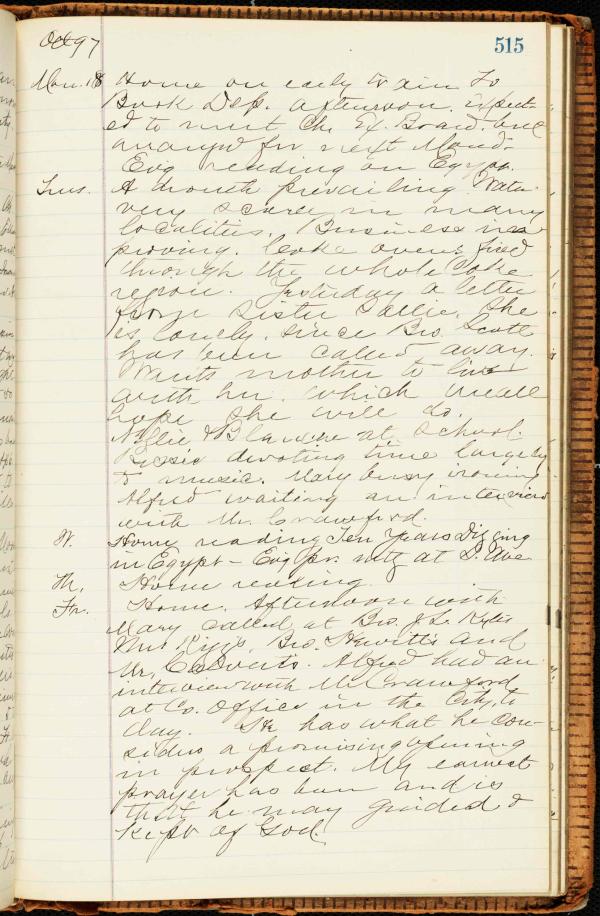 Oct 97
515
Mon. 18 Home on early train to
Book Dep. afternoon. Expect-
ed to meet Ch. Ex. Board. but
arranged for next Mond.
Evg reading on Egypt.
Tues. A drouth prevailing. Water
very scarce in many
localities. Business im
proving. Coke ovens fired
through the whole Coke
region. Yesterday a letter
from Sister Sallie. She
is lonely. since Bro. Scott
has been called away.
Wants mother to live
with her. which we all
hope she will do.
Nellie & Blanche at School.
Bessie devoting time largely
to music. Mary busy ironing
Alfred waiting an interview
with Mr. Crawford.
W. Home reading Ten Years Digging
in Egypt - Evg pr. mtg at D. Ave
Th, Home reading.
Fr. Home. Afternoon with
Mary called at Bro. J. L.
Mrs Bro. Hewitt's and
Mr, Calvert's. Alfred had an
interview with Mr Crawford
at Co. Office in the City, to
day. He has what he con-
siders a promising opening
in prospect. My earnest
prayer has been and is
that he may guided &
kept of God.